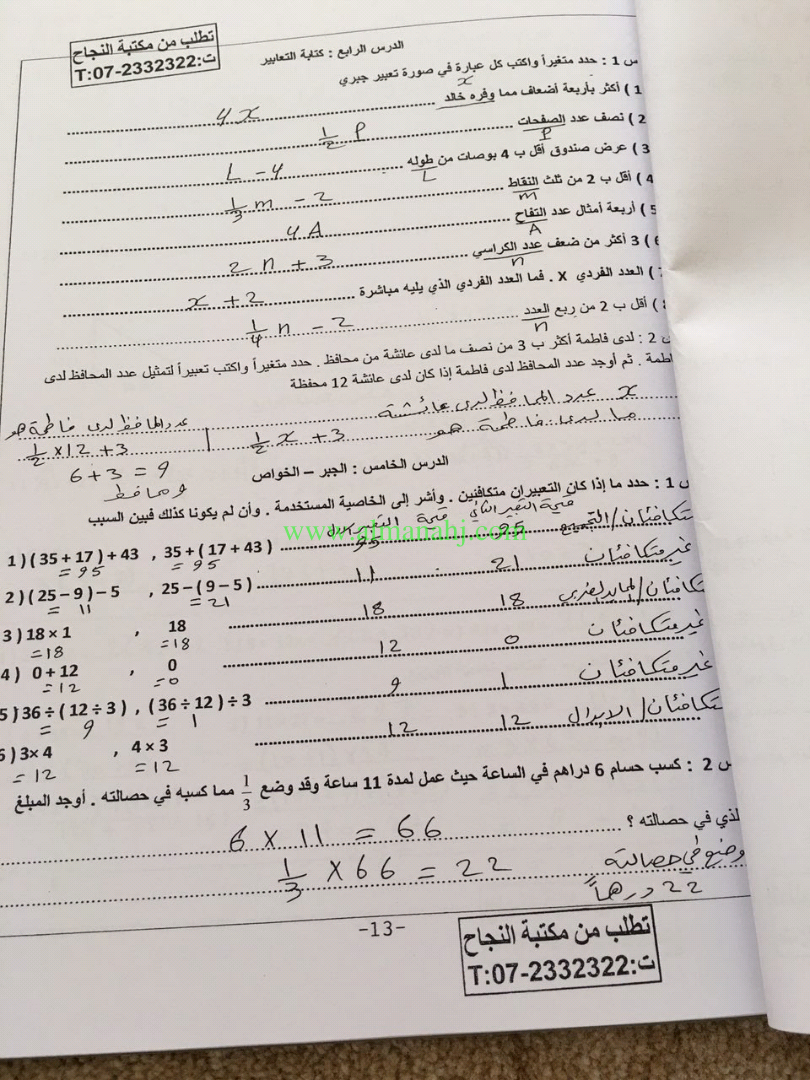 تطلب من مكتبة النجاح
ت:T:07-2332322
الدرس الرابع : كتابة التعابير
س 1 : حدد متغيراً واكتب كل عبارة في صورة تعبير جبري
1 ) أكثر بأربعة أضعاف مما وفره خالد 4x
x
2 ) نصف عدد الصفحات 1/2 P
P
3 ) عرض صندوق أقل ب 4 بوصات من طوله L - 4
L
4 ) أقل ب 2 من ثلث النقاط 1/3 m - 2
m
5 ) أربعة أمثال عدد التفاح 4A
A
6 ) 3 أكثر من ضعف عدد الكراسي 2n + 3
n
7 ) العدد الفردي X . فما العدد الفردي الذي يليه مباشرة x + 2
) أقل ب 2 من ربع العدد 1/4 n - 2
n
2 : لدى فاطمة أكثر ب 3 من نصف ما لدى عائشة من محافظ . حدد متغيراً واكتب تعبيراً لتمثيل عدد المحافظ لدى
فاطمة . ثم أوجد عدد المحافظ لدى فاطمة إذا كان لدى عائشة 12 محفظة
x عدد المحافظ لدى عائشة
ما لدى فاطمة هو 1/2 x + 3
عدد المحافظ لدى فاطمة هو
1/2 × 12 + 3
6 + 3 = 9
محافظ
الدرس الخامس : الجبر – الخواص
س 1 : حدد ما إذا كان التعبيران متكافئين . وأشر إلى الخاصية المستخدمة . وأن لم يكونا كذلك فبين السبب
قيمة التعبير الثاني
قيمة التعبير الأول
www.almanahj.com
1 ) ( 35 + 17 ) + 43 , 35 + ( 17 + 43 ) 95 95 متكافئان / التجميع
= 95 = 95
2 ) ( 25 – 9 ) – 5 , 25 – ( 9 – 5 ) 11 21 غير متكافئان
= 11 = 21
3 ) 18 × 1 , 18 18 18 متكافئان / المحايد الضربي
= 18 = 18
4 ) 0 + 12 , 0 12 0 غير متكافئان
= 12 = 0
5 ) 36 ÷ ( 12 ÷ 3 ) , ( 36 ÷ 12 ) ÷ 3 9 1 غير متكافئان
= 9 = 1
6 ) 3× 4 , 4 × 3 12 12 متكافئان / الابدال
= 12 = 12
س 2 : كسب حسام 6 دراهم في الساعة حيث عمل لمدة 11 ساعة وقد وضع 1/3 مما كسبه في حصالته . أوجد المبلغ
الذي في حصالته ؟ 6 × 11 = 66
1/3 × 66 = 22 وضع في حصالته
22 درهماً
-13-
تطلب من مكتبة النجاح
ت:T:07-2332322